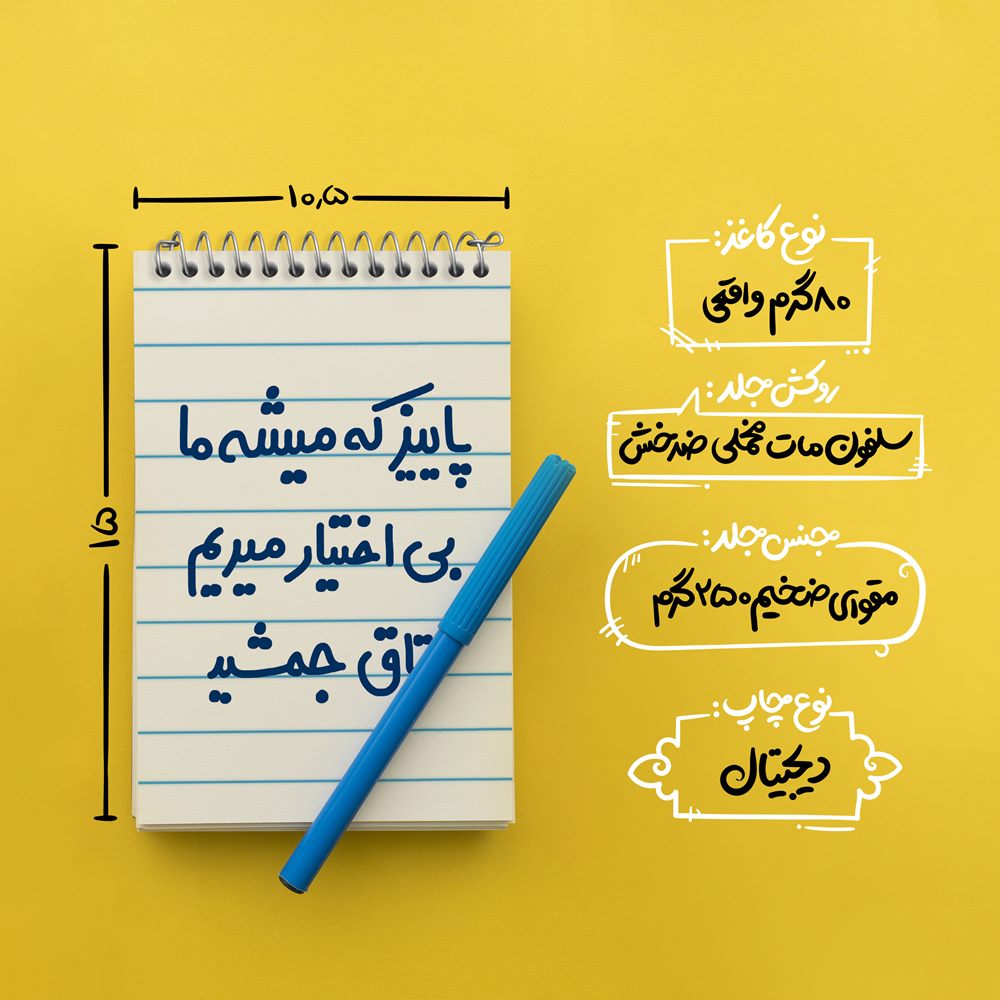 ۱۰٫۵
۱۵
پاییز که میشه ما
بی اختیار میریم
تاق جمشید
نوع کاغذ:
۸۰ گرم واقعی
روکش جلد:
سلفون مات مخملی ضدخش
جنس جلد:
مقوای ضخیم ۲۵۰ گرم
نوع چاپ:
دیجیتال